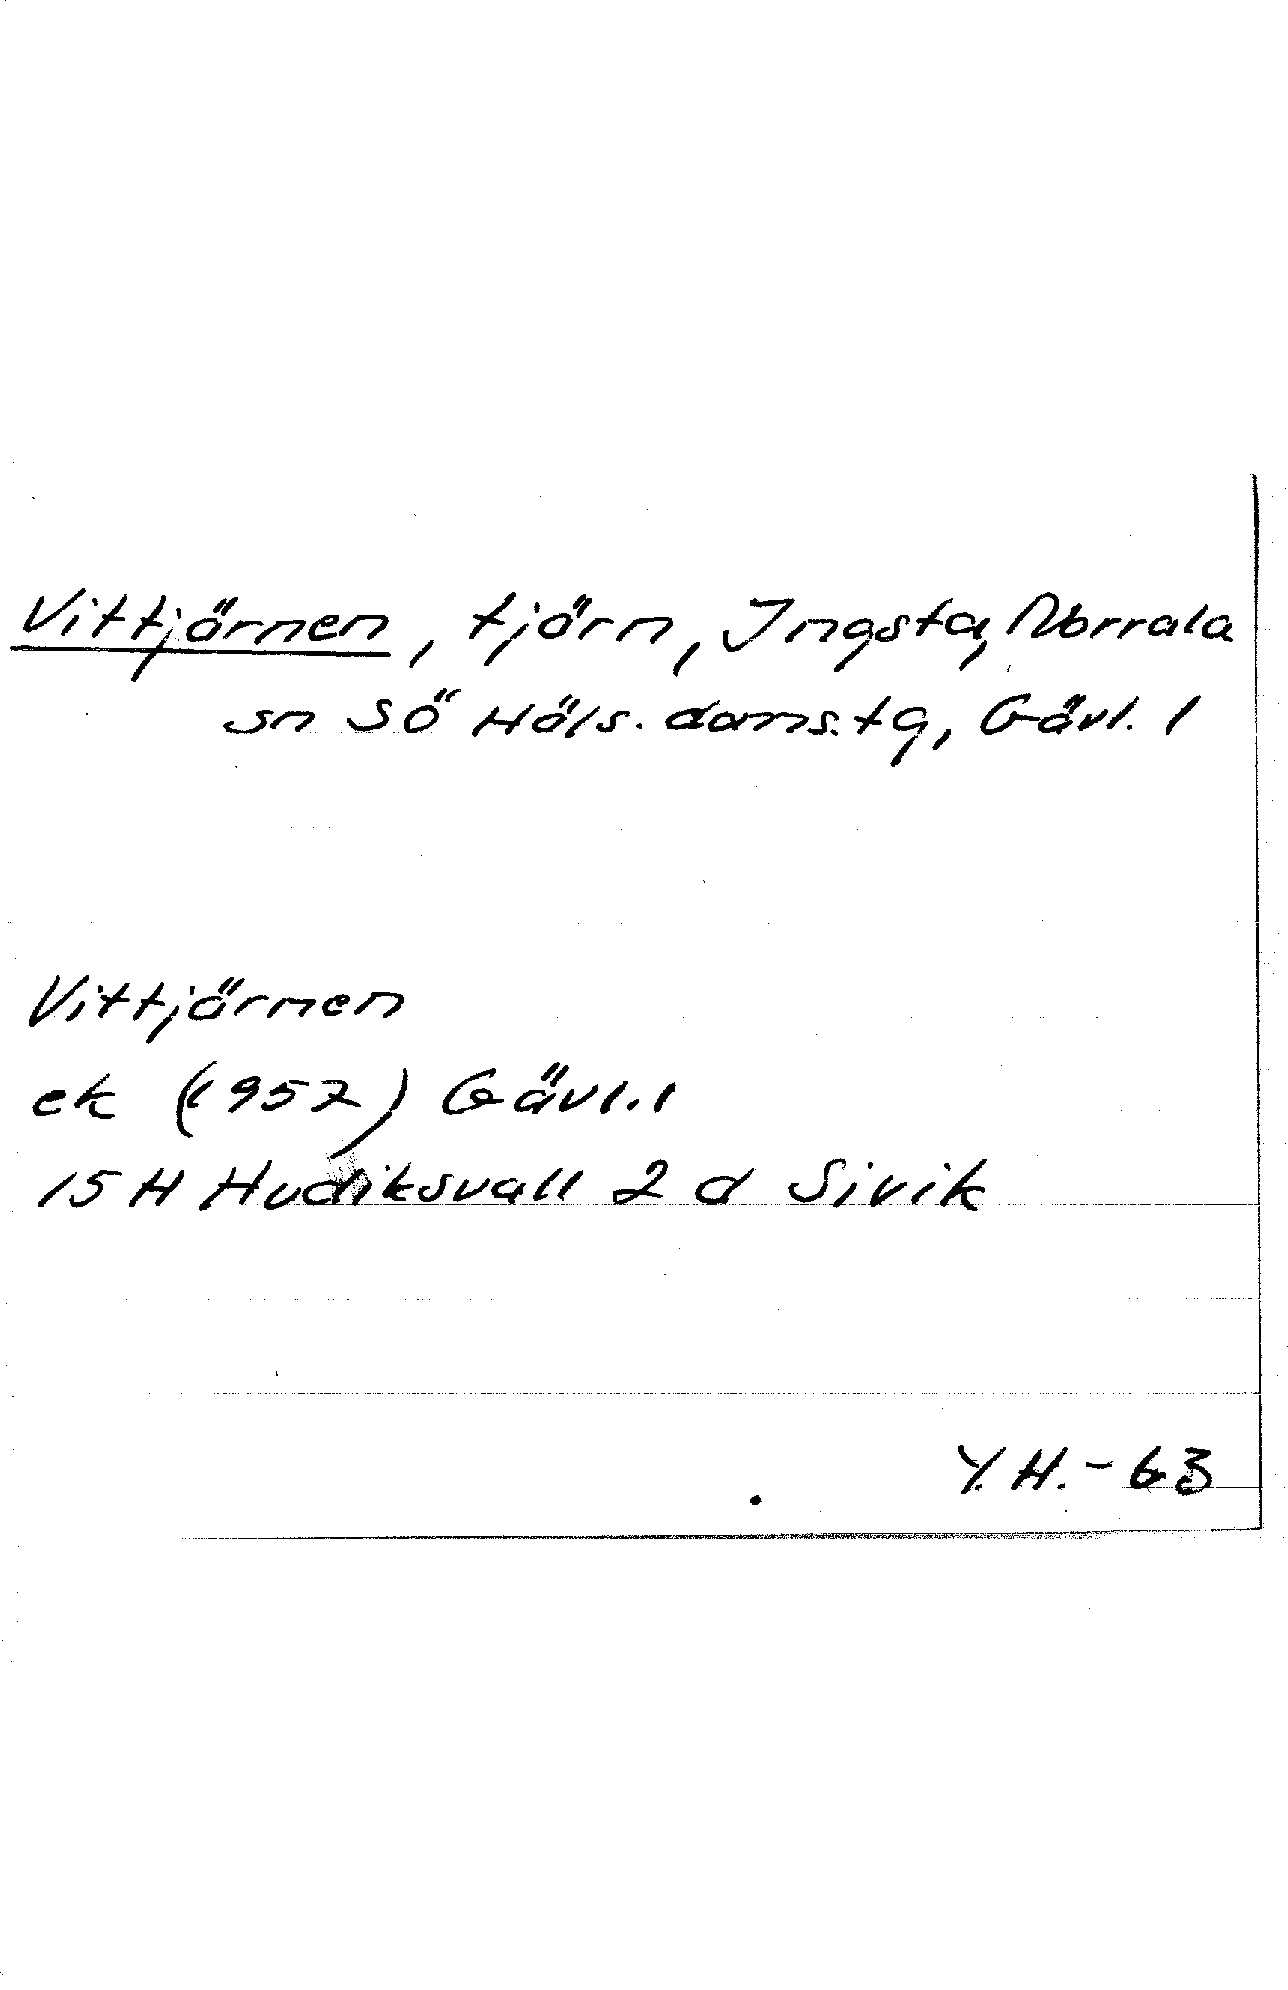 Vittjärnen, tjärn, Ingsta, Norrala
sn SÖ Häls. domstg, Gävl. l
Vittjärnen
ek (1952) Gävl. l
15 H Hudiksvall 2 d Sivik
Y.H.-63